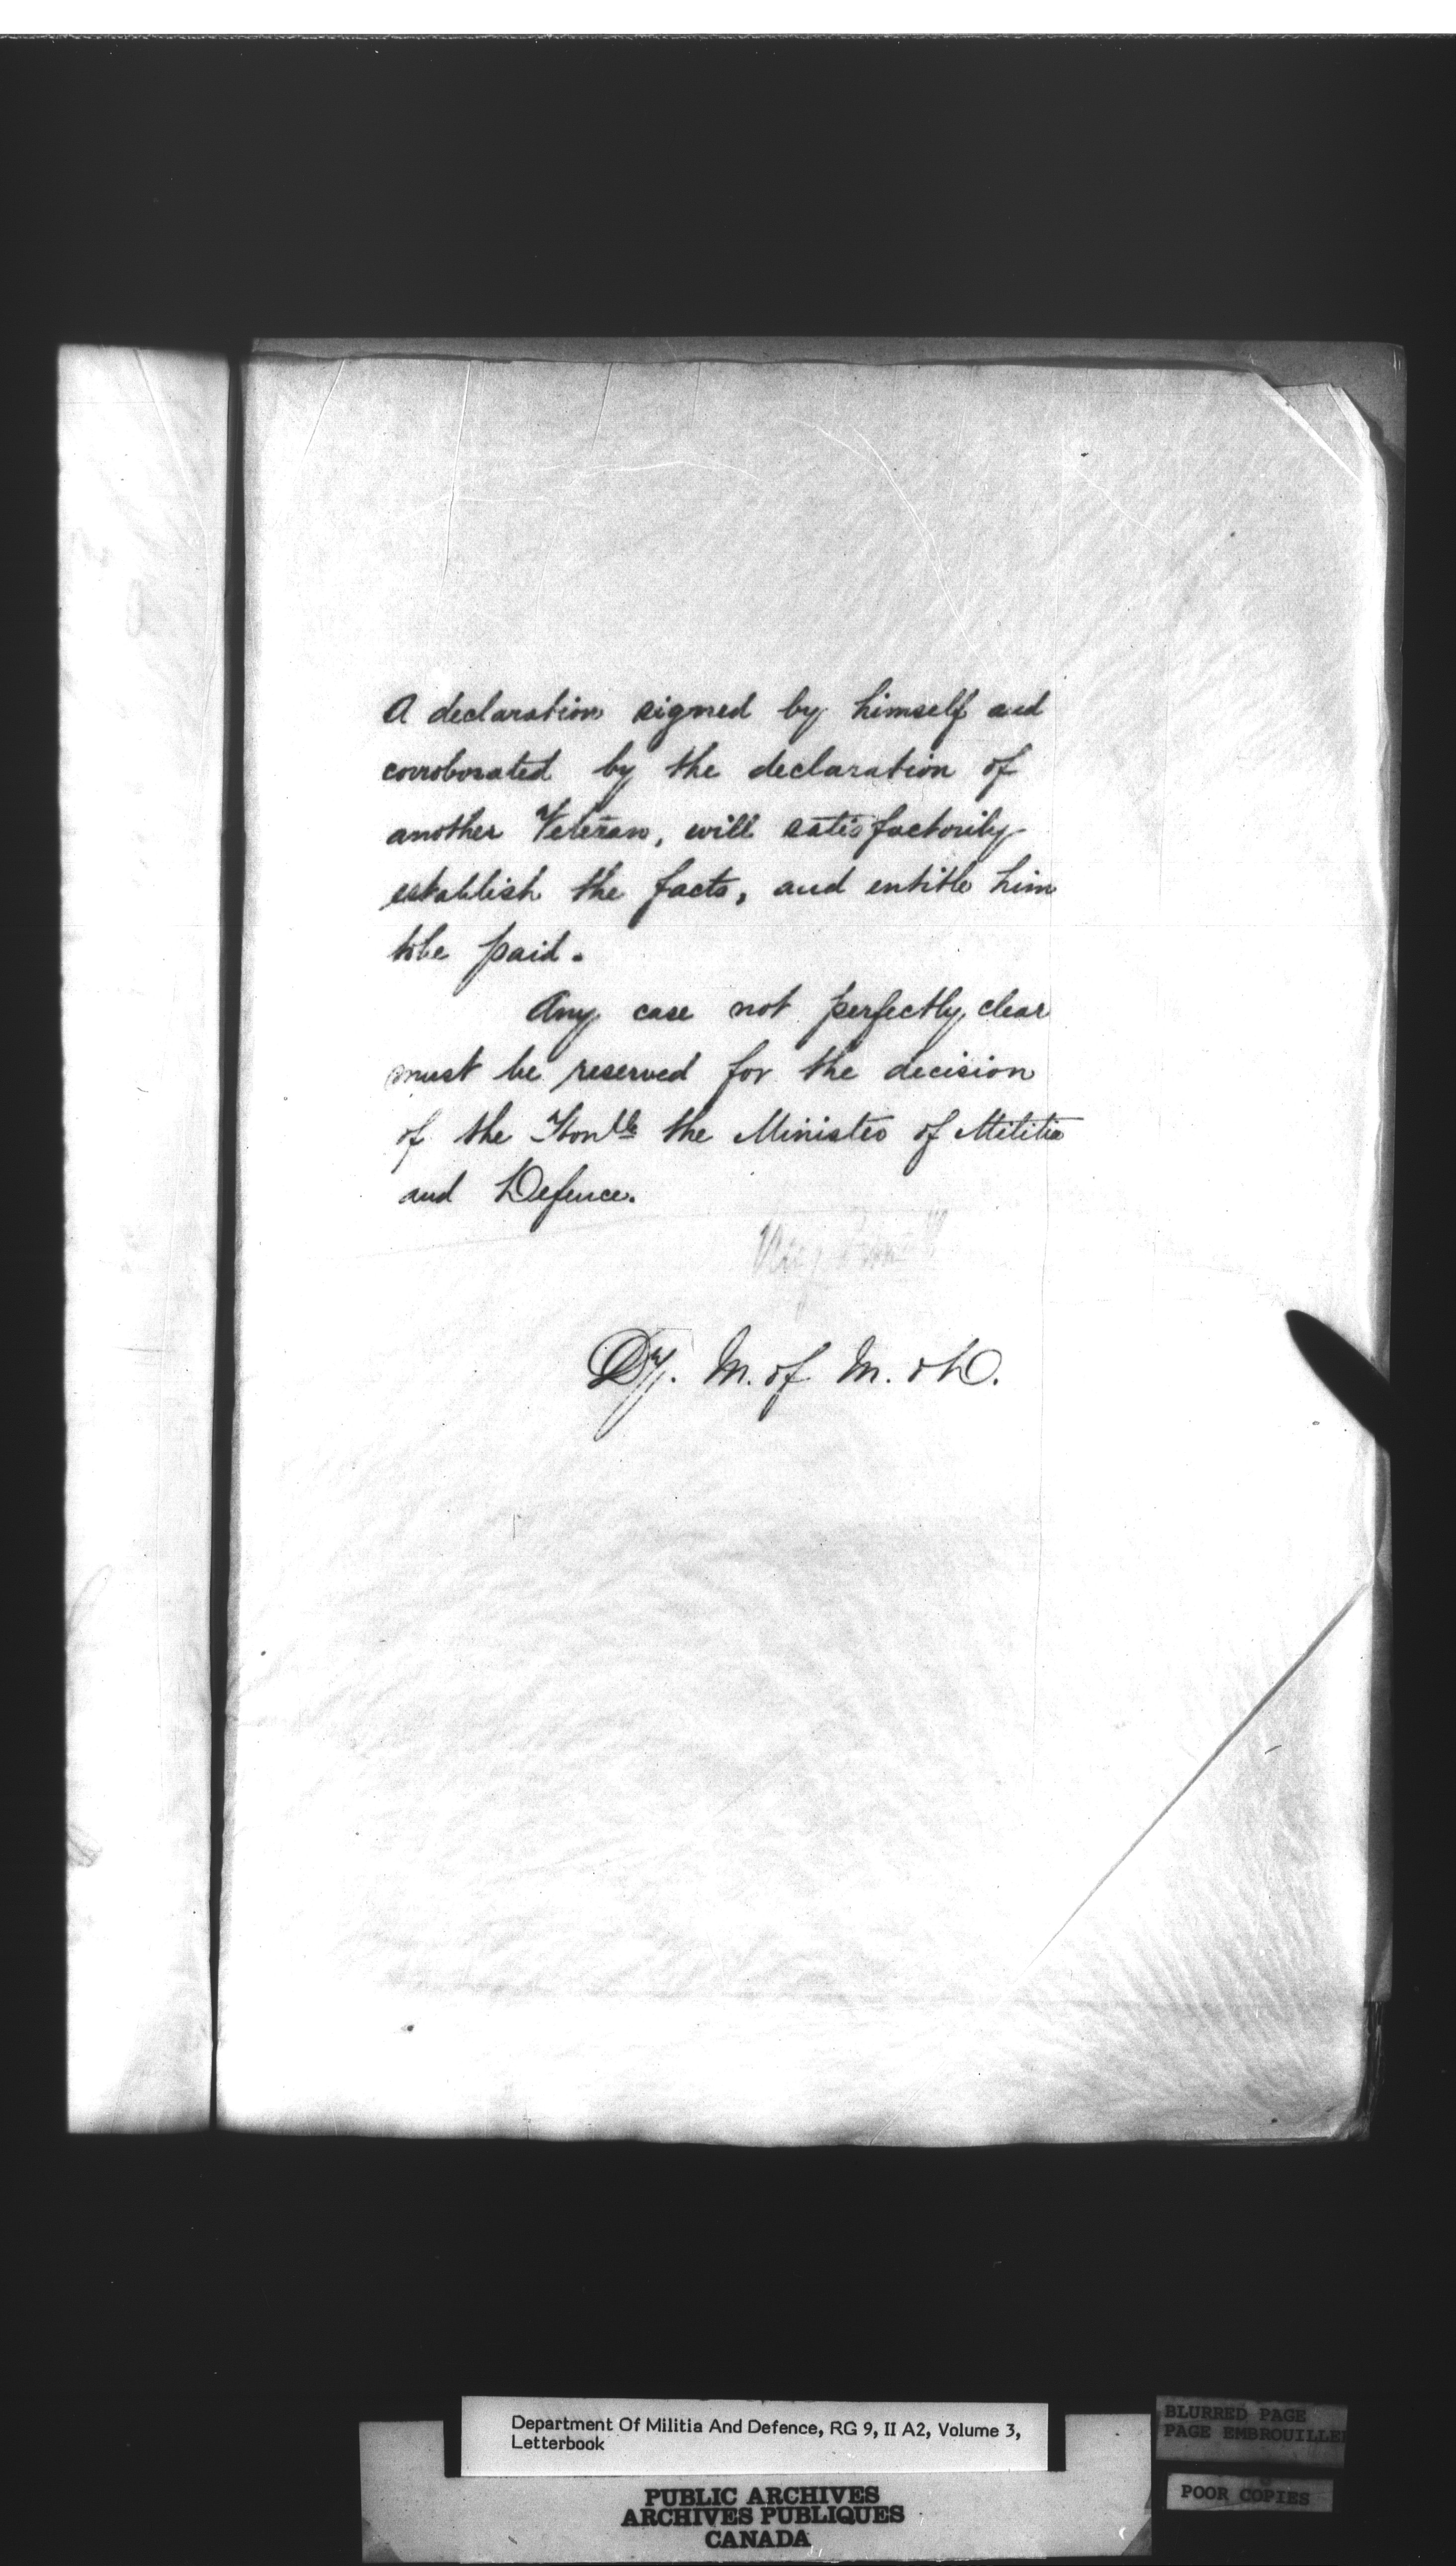 A declaration signed by himself and
corroborated by the declaration of
another Veteran, will satisfactorily
establish the facts, and entitle him
to be paid.
Any case not perfectly clear
must be reserved for the decision
of the Honble the Minister of Militia
and Defence.
Dy. M. of M. & D.
Department Of Militia And Defence, RG 9, II A2, Volume 3,
Letterbook
PUBLIC ARCHIVES
ARCHIVES PUBLIQUES
CANADA
BLURRED PAGE
PAGE EMBROUILLEE
POOR COPIES